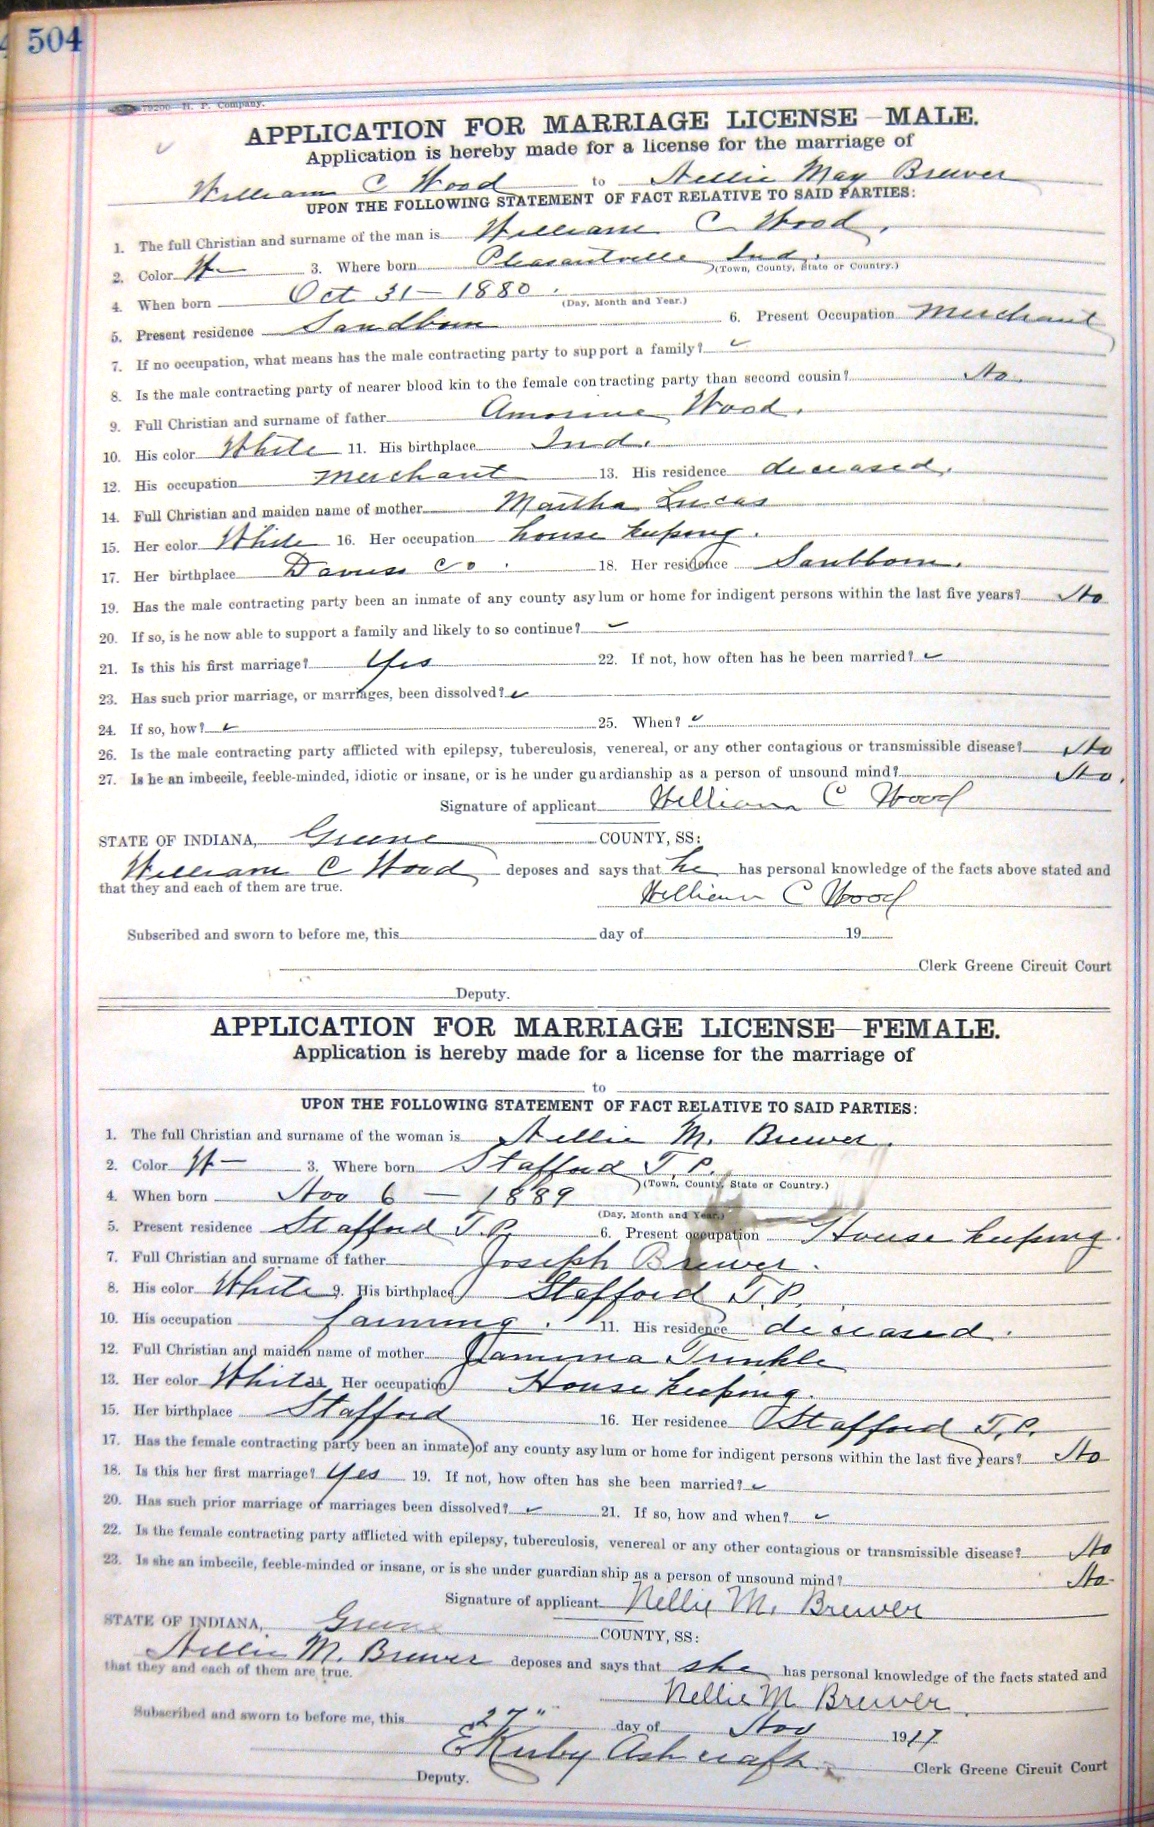 504
79206—H. P. Company.
APPLICATION FOR MARRIAGE LICENSE—MALE.
Application is hereby made for a license for the marriage of
William C Wood to Nellie May Brewer
UPON THE FOLLOWING STATEMENT OF FACT RELATIVE TO SAID PARTIES:
1. The full Christian and surname of the man is William C Wood.
2. Color W— 3. Where born Pleasantville Ind.
(Town, County, State or Country.)
4. When born Oct 31 — 1880.
(Day, Month and Year.)
5. Present residence Sandborn 6. Present Occupation Merchant
7. If no occupation, what means has the male contracting party to support a family? ✓
8. Is the male contracting party of nearer blood kin to the female contracting party than second cousin? No.
9. Full Christian and surname of father Wood.
10. His color White 11. His birthplace Ind.
12. His occupation Merchant 13. His residence deceased.
14. Full Christian and maiden name of mother Martha Lucas
15. Her color White 16. Her occupation house keeping.
17. Her birthplace Daviess Co. 18. Her residence Sandborn.
19. Has the male contracting party been an inmate of any county asylum or home for indigent persons within the last five years? No
20. If so, is he now able to support a family and likely to so continue? ✓
21. Is this his first marriage? Yes 22. If not, how often has he been married? ✓
23. Has such prior marriage, or marriages, been dissolved? ✓
24. If so, how? ✓ 25. When? ✓
26. Is the male contracting party afflicted with epilepsy, tuberculosis, venereal, or any other contagious or transmissible disease? No
27. Is he an imbecile, feeble-minded, idiotic or insane, or is he under guardianship as a person of unsound mind? No.
Signature of applicant William C Wood
STATE OF INDIANA, Greene COUNTY, SS:
William C Wood deposes and says that he has personal knowledge of the facts above stated and
that they and each of them are true.
William C Wood
Subscribed and sworn to before me, this day of 19
Clerk Greene Circuit Court
Deputy.
APPLICATION FOR MARRIAGE LICENSE—FEMALE.
Application is hereby made for a license for the marriage of
to
UPON THE FOLLOWING STATEMENT OF FACT RELATIVE TO SAID PARTIES:
1. The full Christian and surname of the woman is Nellie M. Brewer.
2. Color W— 3. Where born Stafford T.P.
(Town, County, State or Country.)
4. When born Nov 6 — 1889
(Day, Month and Year.)
5. Present residence Stafford T.P. 6. Present occupation House keeping.
7. Full Christian and surname of father Joseph Brewer.
8. His color White 9. His birthplace Stafford T.P.
10. His occupation farming. 11. His residence deceased.
12. Full Christian and maiden name of mother Jamima Trinkle
13. Her color White 14 Her occupation House keeping.
15. Her birthplace Stafford 16. Her residence Stafford T.P.
17. Has the female contracting party been an inmate of any county asylum or home for indigent persons within the last five years? No
18. Is this her first marriage? Yes 19. If not, how often has she been married? ✓
20. Has such prior marriage or marriages been dissolved? ✓ 21. If so, how and when? ✓
22. Is the female contracting party afflicted with epilepsy, tuberculosis, venereal or any other contagious or transmissible disease? No
23. Is she an imbecile, feeble-minded or insane, or is she under guardianship as a person of unsound mind? No.
Signature of applicant Nellie M. Brewer
STATE OF INDIANA, Greene COUNTY, SS:
Nellie M. Brewer deposes and says that she has personal knowledge of the facts stated and
that they and each of them are true.
Nellie M Brewer.
Subscribed and sworn to before me, this 27" day of Nov 1917
E Kirby Ashcraft. Clerk Greene Circuit Court
Deputy.